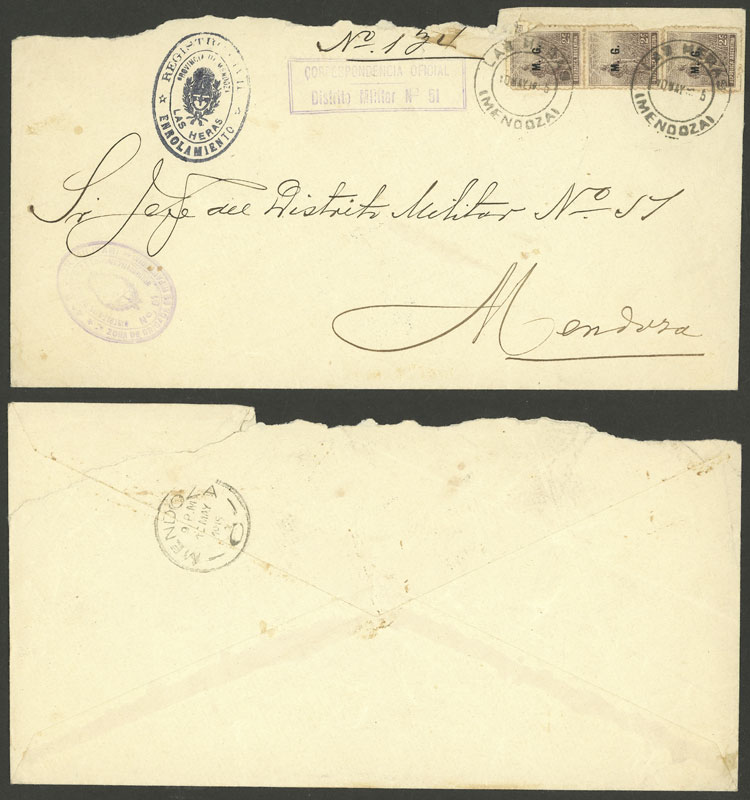 REGISTRO CIVIL
PROVINCIA DE MENDOZA
LAS HERAS
ENROLAMIENTO
Nº. 1
CORRESPONDENCIA OFICIAL
Distrito Militar Nº 51
M. G.
M. G.
M.
LAS HERAS
10 MAY
(MENDOZA)
LAS HERAS
10 MAY 5
(MENDOZA)
Sr Jefe del Distrito Militar Nº 51
Mendoza
MENDOZA
9 P.M
12 MAY
1915